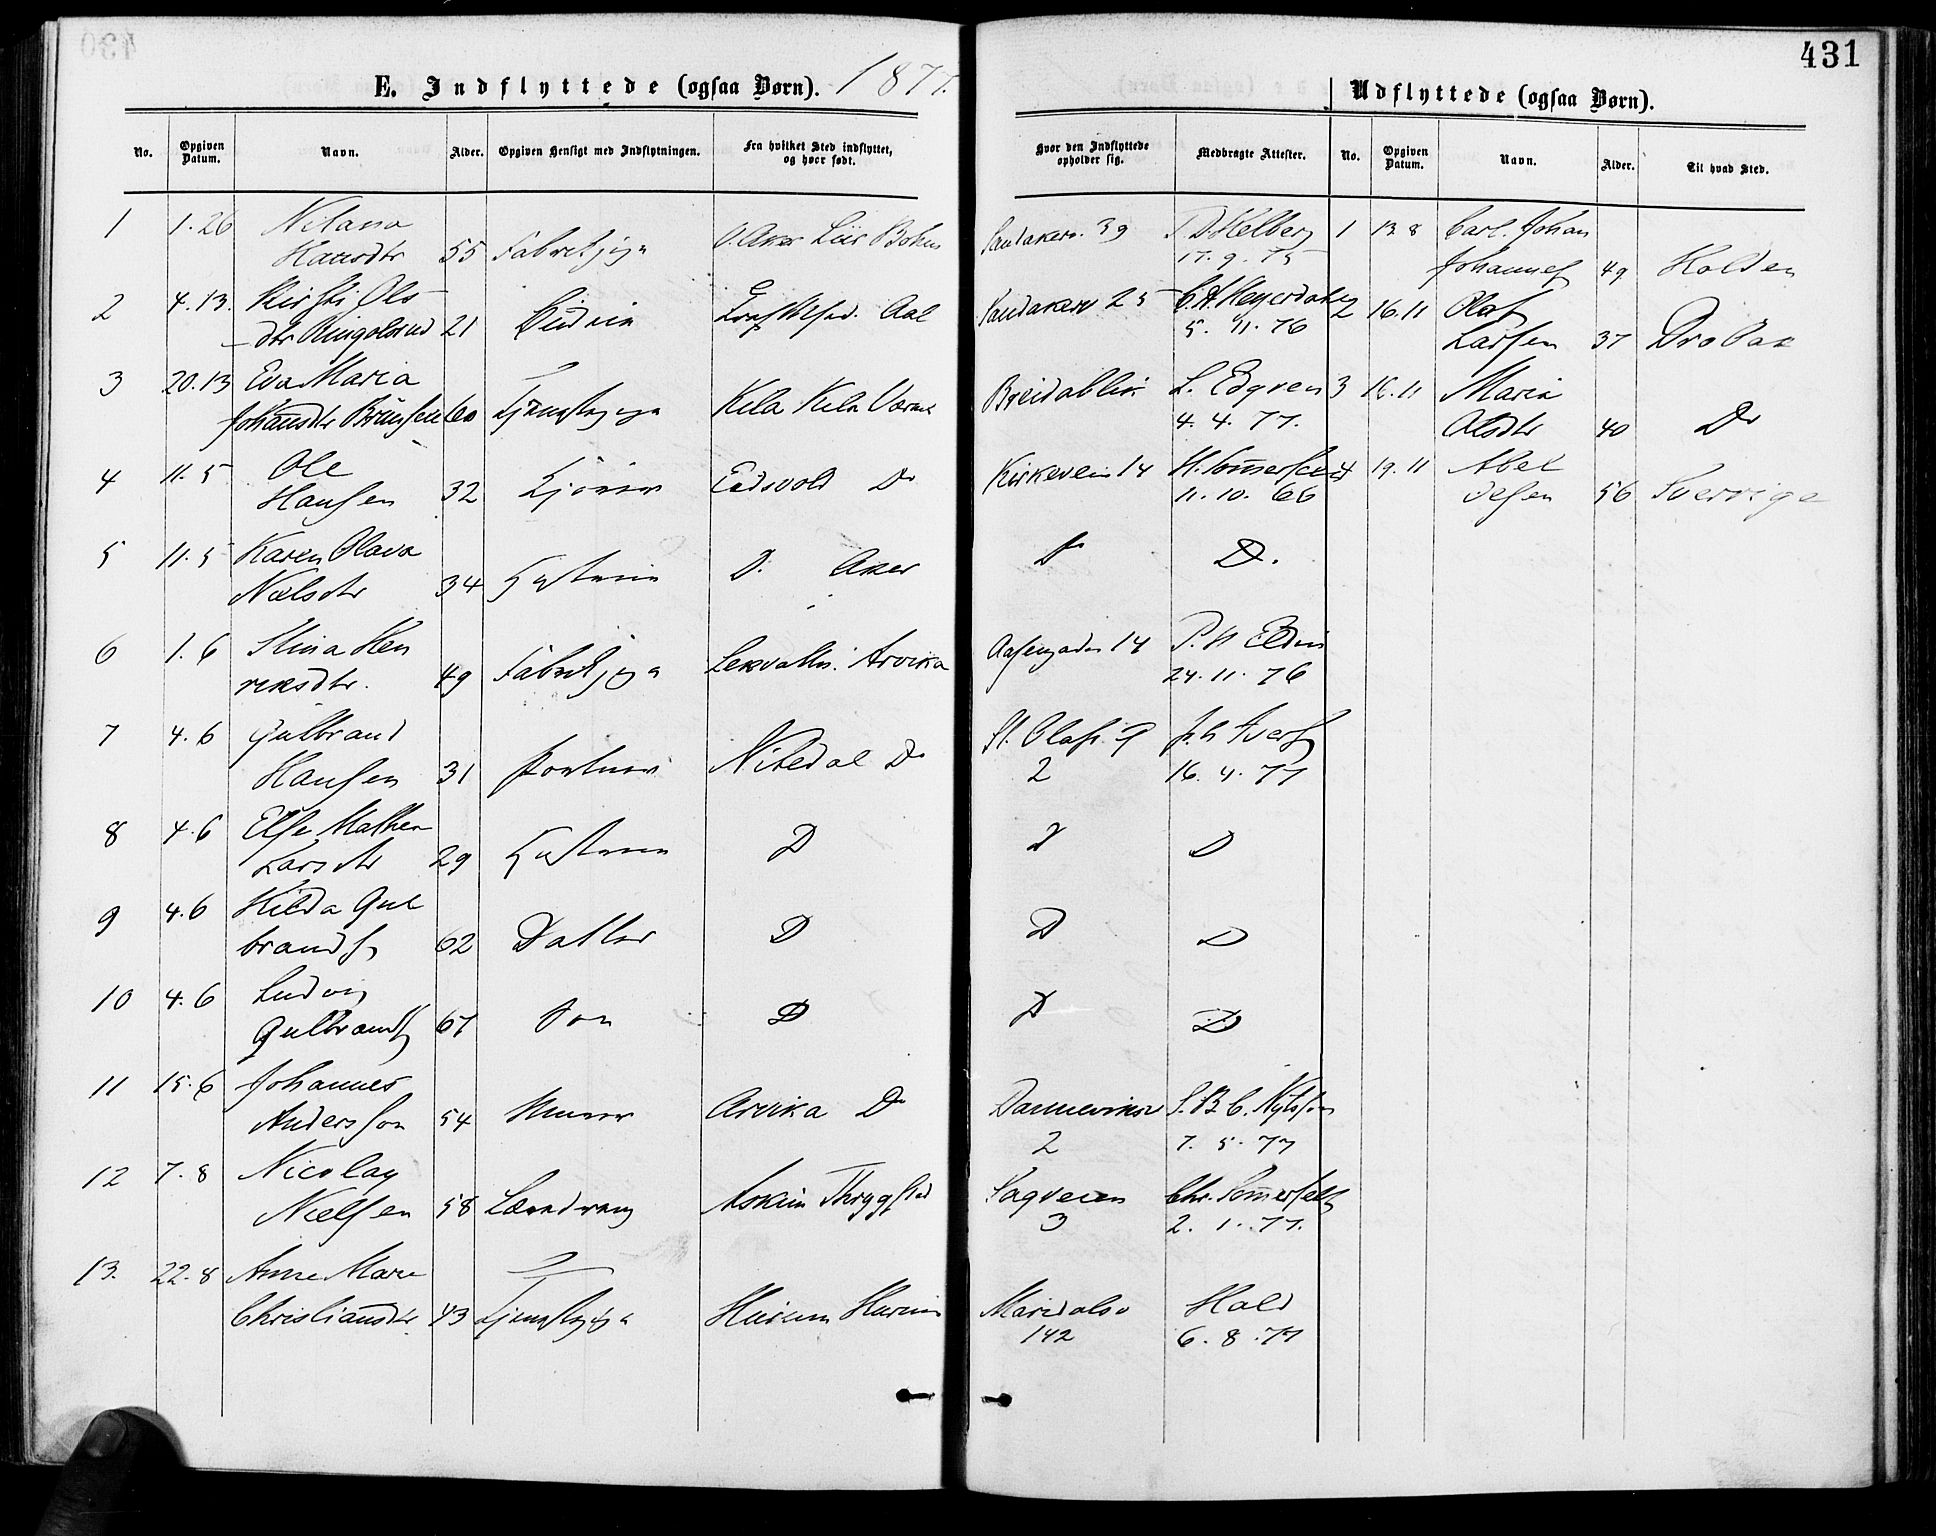 431
E. Indflyttede (ogsaa Børn). 1877.
Udflyttede (ogsaa Børn).
No. Opgiven Datum. Navn. Alder. Opgiven Hensigt med Indflytningen. Fra hvilket Sted indflyttet, og hvor født.
Hvor den Indflyttede opholder sig. Medbragte Attester. No. Opgiven Datum. Navn. Alder. Til hvad Sted.
1 1.26 Hansdtr 55 Fabrikpige O. Aker
Sandakerv. 39 Helberg 17.9.75
1 13 8 Carl. Johan Johannes 49 Holden
2 4.13. Kirsti Olsdtr Ringolsrud 21 Aal
Sandakerv 25 C. H. Heyerdahl 5. 11. 76
2 16.11 Olaf Larsen 37 Drobak
3 20.13 Eva Maria Johansdtr 60 Tjenestepige Kila Kila
Breidablik L. Edgren 4. 4. 77.
3 16.11 Maria Olsdtr 40 Do
4 11.5 Ole Hansen 32 Eidsvold Do
Kirkeveien 14 H. Sommerfeldt 11. 10. 66
4 19.11 Abel 56 Sverrige
5 11.5 Karen Olava Nielsdtr 34 Hustru D. Aker
D D.
6 1.6 Stina Henreksdtr. 49 Fabrikpige Arvika
Aasengaden 14 24.11.76
7 4.6 Gulbrand Hansen 31 Nitedal Do
St. Olafs. G 2 Iversen 16. 4. 77
8 4.6 Else Mathea Larsdtr 29 Hustru D
D D
9 4.6 Hilda Gulbrands 62 Datter D
D D
10 4.6 Ludvig Gulbrands 67 Søn D
D D
11 15.6 Johannes Andersson 54 Murer Arvika Do
Dannevirksv 2 7. 5. 77
12 7.8 Nicolay Nielsen 58 Askim Thrygstad
Sagveien 3 Chr. Sommerfelt 2. 1. 77.
13. 22.8 Anne Marie Christiansdtr 43 Tjenestepige Hurum Hurum
Maridalsv 142 Hald 6. 8. 77